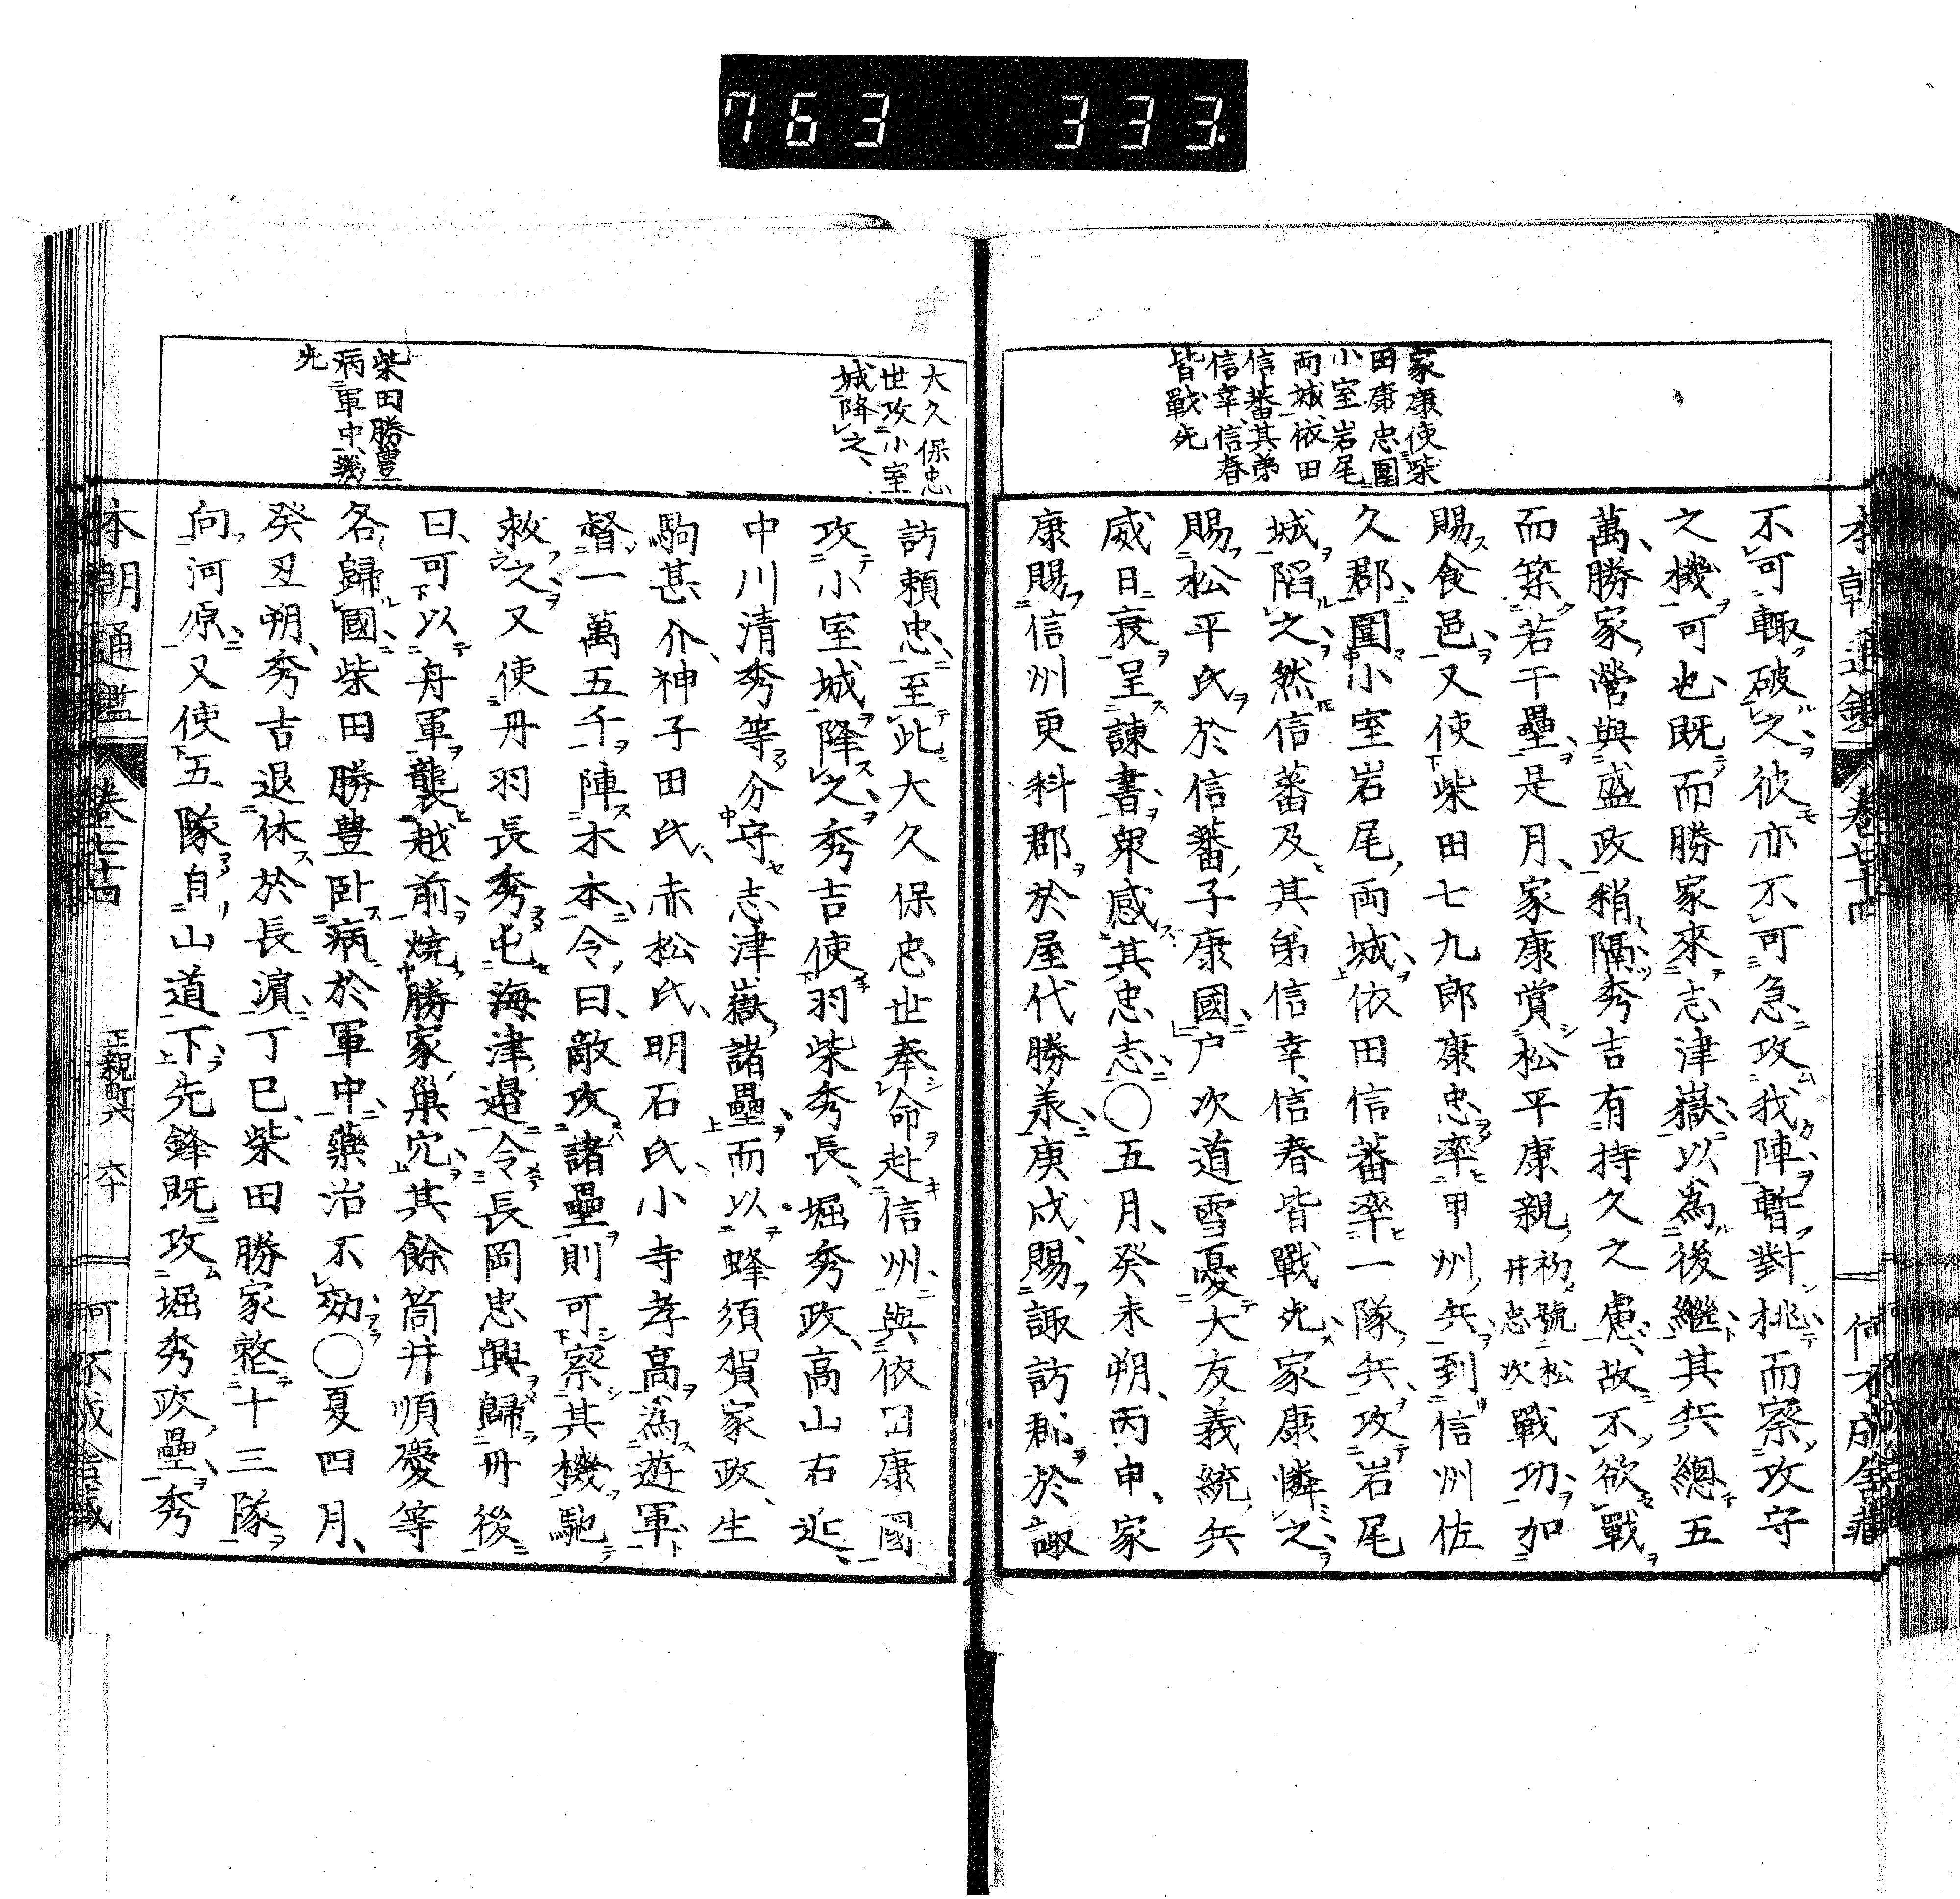 763 333.
家康使柴
田康忠圍
小室岩尾
両城依田
信蕃其弟
信幸信春
皆戰死
不可輙破之彼亦不可急攻我陣暫對挑而察攻守
之機可也既而勝家來志津嶽以為後繼其兵總五
萬勝家營與盛政稍隔秀吉有持久之慮故不欲戰
而築若干壘是月家康賞松平康親初號松井忠次戰功加
賜食邑又使柴田七九郎康忠率甲州兵到信州佐
久郡圍小室岩尾両城依田信蕃率一隊兵攻岩尾
城陷之然信蕃及其弟信幸信春皆戰死家康憐之
賜松平氏於信蕃子康國戸次道雪憂大友義統兵
威日衰呈諫書衆感其忠志〇五月癸未朔丙申家
康賜信州更科郡於屋代勝永庚戌賜諏訪郡於諏
大久保忠
世攻小室
城降之
柴田勝豊
病軍中
死
訪頼忠至此大久保忠世奉命赴信州與依田康國
攻小室城降之秀吉使羽柴秀長堀秀政高山右近
中川清秀等分守志津嶽諸壘而以蜂須賀家政生
駒甚介神子田氏赤松氏明石氏小寺孝高為遊軍
督一萬五千陣木本令曰敵攻諸壘則可察其機馳
救之又使丹羽長秀屯海津邉令長岡忠興歸丹後
曰可以舟軍襲越前燒勝家巢穴其餘筒井順慶等
各歸國柴田勝豊臥病於軍中藥治不効〇夏四月
癸丑朔秀吉退休於長濱丁巳柴田勝家整十三隊
向河原又使五隊自山道下先鋒既攻堀秀政壘秀
本朝通鑑 卷七十四 正親町六